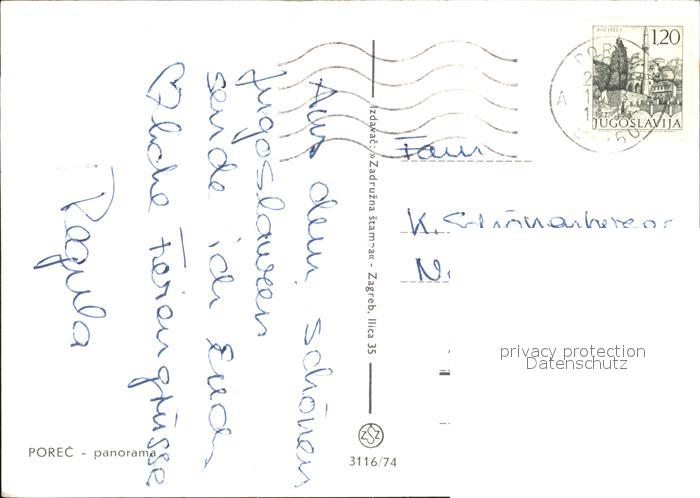 Aus dem schönen
Jugoslawien
sende ich Euch
♡liche Feriengrüsse
Regula
POREČ - panorama
Izdavač: »Zadružna štampa« - Zagreb, Ilica 35
3116/74
POČITELJ
1,20
JUGOSLAVIJA
Fam
K.
privacy protection
Datenschutz